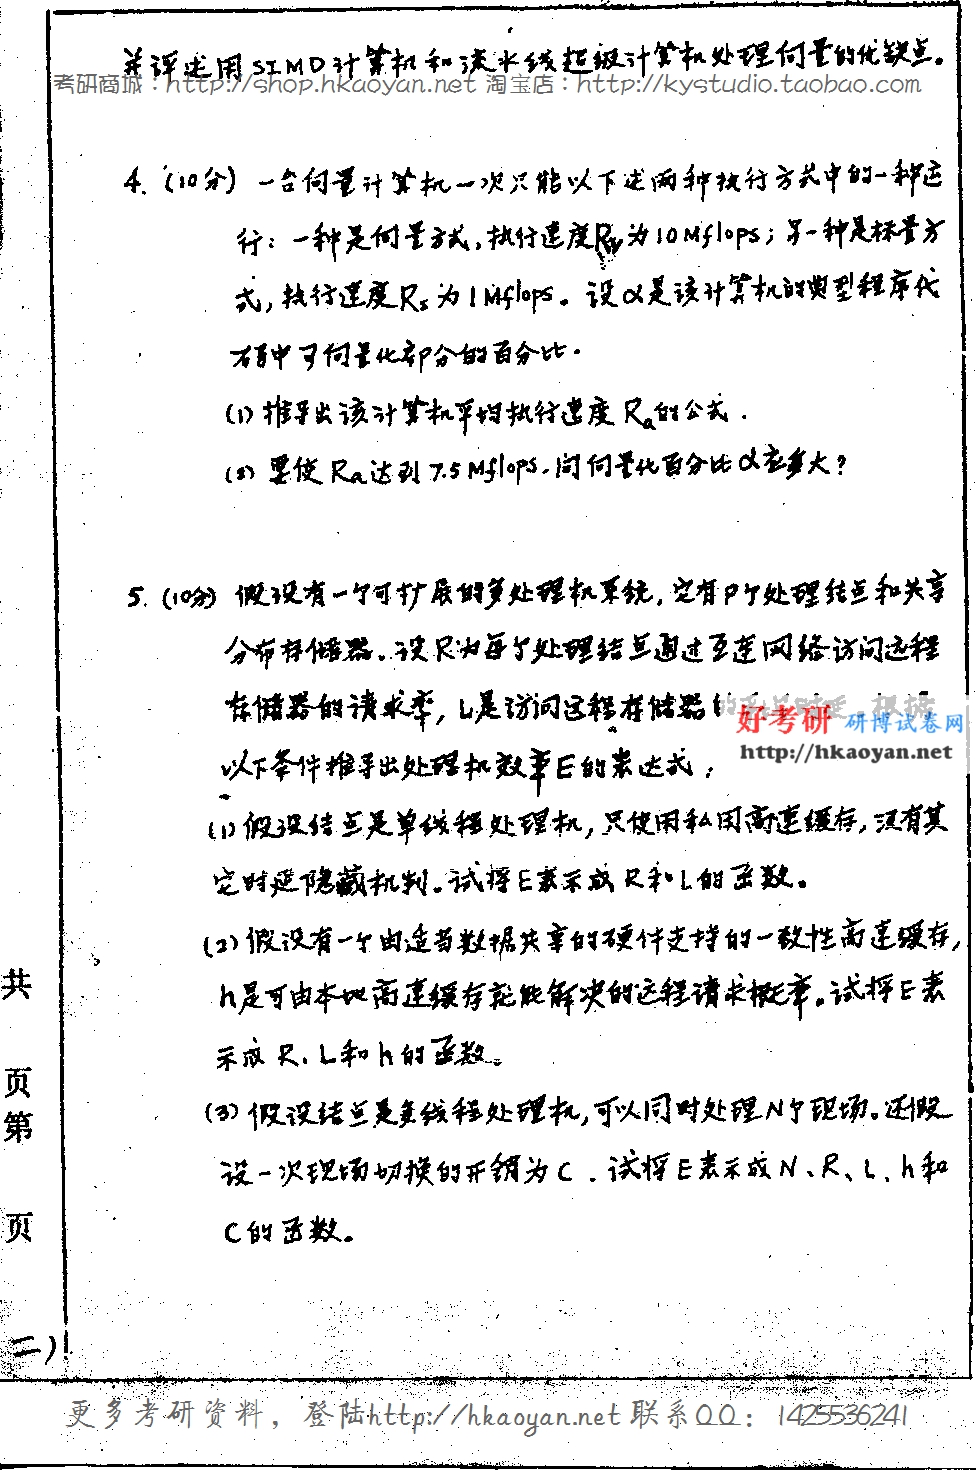 并评述用SIMD计算机和流水线超级计算机处理向量的优缺点。
考研商城：http://shop.hkaoyan.net 淘宝店：http://kystudio.taobao.com
4. (10分) 一台向量计算机一次只能以下述两种执行方式中的一种运
行：一种是向量方式，执行速度Rv为10Mflops；另一种是标量方
式，执行速度Rs为1Mflops。设α是该计算机的典型程序代
码中可向量化部分的百分比．
(1) 推导出该计算机平均执行速度Ra的公式．
(2) 要使Ra达到7.5Mflops．问向量化百分比α应多大？
5. (10分) 假设有一个可扩展的多处理机系统，它有P个处理结点和共享
分布存储器。设R为每个处理结点通过互连网络访问远程
存储器的请求率，L是访问远程存储器的 根据
好考研 研博试卷网
http://hkaoyan.net
以下条件推导出处理机效率E的表达式；
(1) 假设结点是单线程处理机，只使用私用高速缓存，没有其
它时延隐藏机制。试将E表示成R和L的函数。
(2) 假设有一个由适当数据共享的硬件支持的一致性高速缓存，
h是可由本地高速缓存就能解决的远程请求概率。试将E表
示成R、L和h的函数。
(3) 假设结点是多线程处理机，可以同时处理N个现场。还假
设一次现场切换的开销为C．试将E表示成N、R、L、h和
C的函数。
共
页
第
页
二)
更多考研资料，登陆http://hkaoyan.net 联系QQ：1425536241